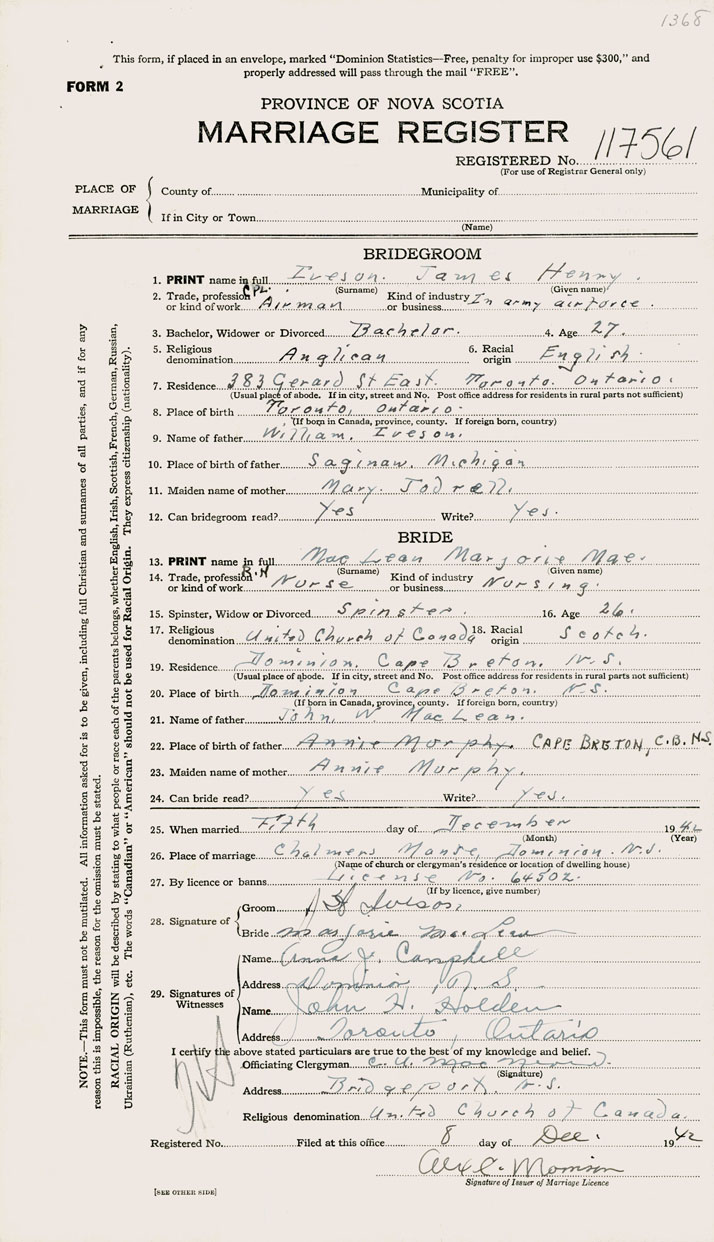 1368
This form, if placed in an envelope, marked "Dominion Statistics—Free, penalty for improper use $300," and
properly addressed will pass through the mail "FREE".
FORM 2
PROVINCE OF NOVA SCOTIA
MARRIAGE REGISTER
REGISTERED No. 117561
(For use of Registrar General only)
PLACE OF MARRIAGE
County of Municipality of
If in City or Town
(Name)
BRIDEGROOM
1. PRINT name in full Iveson. James Henry.
(Surname) (Given name)
2. Trade, profession or kind of work CPL. Airman Kind of industry or business In army airforce.
3. Bachelor, Widower or Divorced Bachelor. 4. Age 27.
5. Religious denomination Anglican 6. Racial origin English.
7. Residence 383 Gerard St East. Toronto. Ontario.
(Usual place of abode. If in city, street and No. Post office address for residents in rural parts not sufficient)
8. Place of birth Toronto, Ontario.
(If born in Canada, province, county. If foreign born, country)
9. Name of father William. Iveson.
10. Place of birth of father Saginaw. Michigan
11. Maiden name of mother Mary. Jodrell.
12. Can bridegroom read? Yes Write? Yes.
BRIDE
13. PRINT name in full Mac Lean Marjorie Mae.
(Surname) (Given name)
14. Trade, profession or kind of work R.N Nurse Kind of industry or business Nursing.
15. Spinster, Widow or Divorced Spinster. 16. Age 26.
17. Religious denomination United Church of Canada 18. Racial origin Scotch.
19. Residence Dominion. Cape Breton. N.S.
(Usual place of abode. If in city, street and No. Post office address for residents in rural parts not sufficient)
20. Place of birth Dominion Cape Breton. N.S.
(If born in Canada, province, county. If foreign born, country)
21. Name of father John. W MacLean.
22. Place of birth of father Annie Murphy. CAPE BRETON, C.B. N.S.
23. Maiden name of mother Annie Murphy.
24. Can bride read? Yes Write? Yes.
25. When married Fifth day of December 1942
(Month) (Year)
26. Place of marriage Chalmers Manse, Dominion. N.S.
(Name of church or clergyman's residence or location of dwelling house)
27. By licence or banns License No. 64502.
(If by licence, give number)
28. Signature of
Groom J H Iveson.
Bride Marjorie MacLean
29. Signatures of Witnesses
Name Anna J. Campbell
Address Dominion, N.S.
Name John H. Holden
Address Toronto, Ontario
I certify the above stated particulars are true to the best of my knowledge and belief.
Officiating Clergyman
(Signature)
Address Bridgeport, N.S.
Religious denomination United Church of Canada.
Registered No. Filed at this office 8 day of Dec. 1942
Alex C. Morrison
Signature of Issuer of Marriage Licence
[SEE OTHER SIDE]
NOTE.—This form must not be mutilated. All information asked for is to be given, including full Christian and surnames of all parties, and if for any
reason this is impossible, the reason for the omission must be stated.
RACIAL ORIGIN will be described by stating to what people or race each of the parents belongs, whether English, Irish, Scottish, French, German, Russian,
Ukrainian (Ruthenian), etc. The words "Canadian" or "American" should not be used for Racial Origin. They express citizenship (nationality).